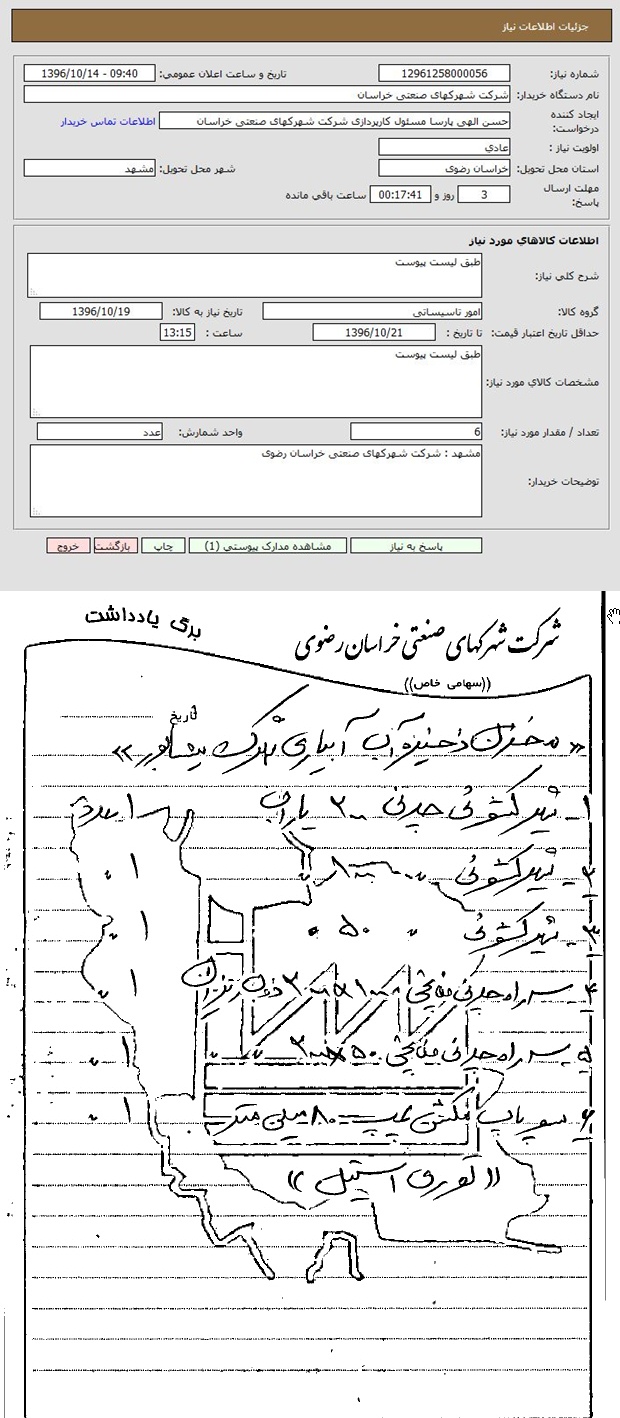 جزئیات اطلاعات نیاز
شماره نیاز: 12961258000056 تاریخ و ساعت اعلان عمومي: 1396/10/14 - 09:40
نام دستگاه خریدار: شرکت شهرکهای صنعتی خراسان
ایجاد کننده درخواست: حسن الهی پارسا مسئول کارپردازی شرکت شهرکهای صنعتی خراسان اطلاعات تماس خریدار
اولویت نیاز : عادي
استان محل تحویل: خراسان رضوی شهر محل تحویل: مشهد
مهلت ارسال پاسخ: 3 روز و 00:17:41 ساعت باقي مانده
اطلاعات کالاهاي مورد نیاز
شرح کلي نیاز: طبق لیست پیوست
گروه کالا: امور تاسیساتی تاریخ نیاز به کالا: 1396/10/19
حداقل تاریخ اعتبار قیمت: تا تاریخ : 1396/10/21 ساعت : 13:15
مشخصات کالاي مورد نیاز: طبق لیست پیوست
تعداد / مقدار مورد نیاز: 6 واحد شمارش: عدد
توضیحات خریدار: مشهد : شرکت شهرکهای صنعتی خراسان رضوی
پاسخ به نیاز مشاهده مدارک پیوستي (1) چاپ بازگشت خروج
شرکت شهرکهای صنعتی خراسان رضوی برگ یادداشت
((سهامی خاص))
تاریخ
« مخزن ذخیره آب آبیاری شهرک نیشابور »
۱- شیر کشوئی چدنی ۲۰۰ ۱ عدد
۲- شیر کشوئی ۱۰۰ ۱ 〃
۳- شیر کشوئی 〃 ۵۰ 〃 ۱ 〃
۴- سه راه چدنی ۱۰۰ ۲۰۰ ۱ 〃
۵- سه راه چدنی ۵۰ ۲۰۰ ۱ 〃
۶- سوپاپ مکش پمپ ۸۰ میلی متر ۱ 〃
(( توری استیل ))